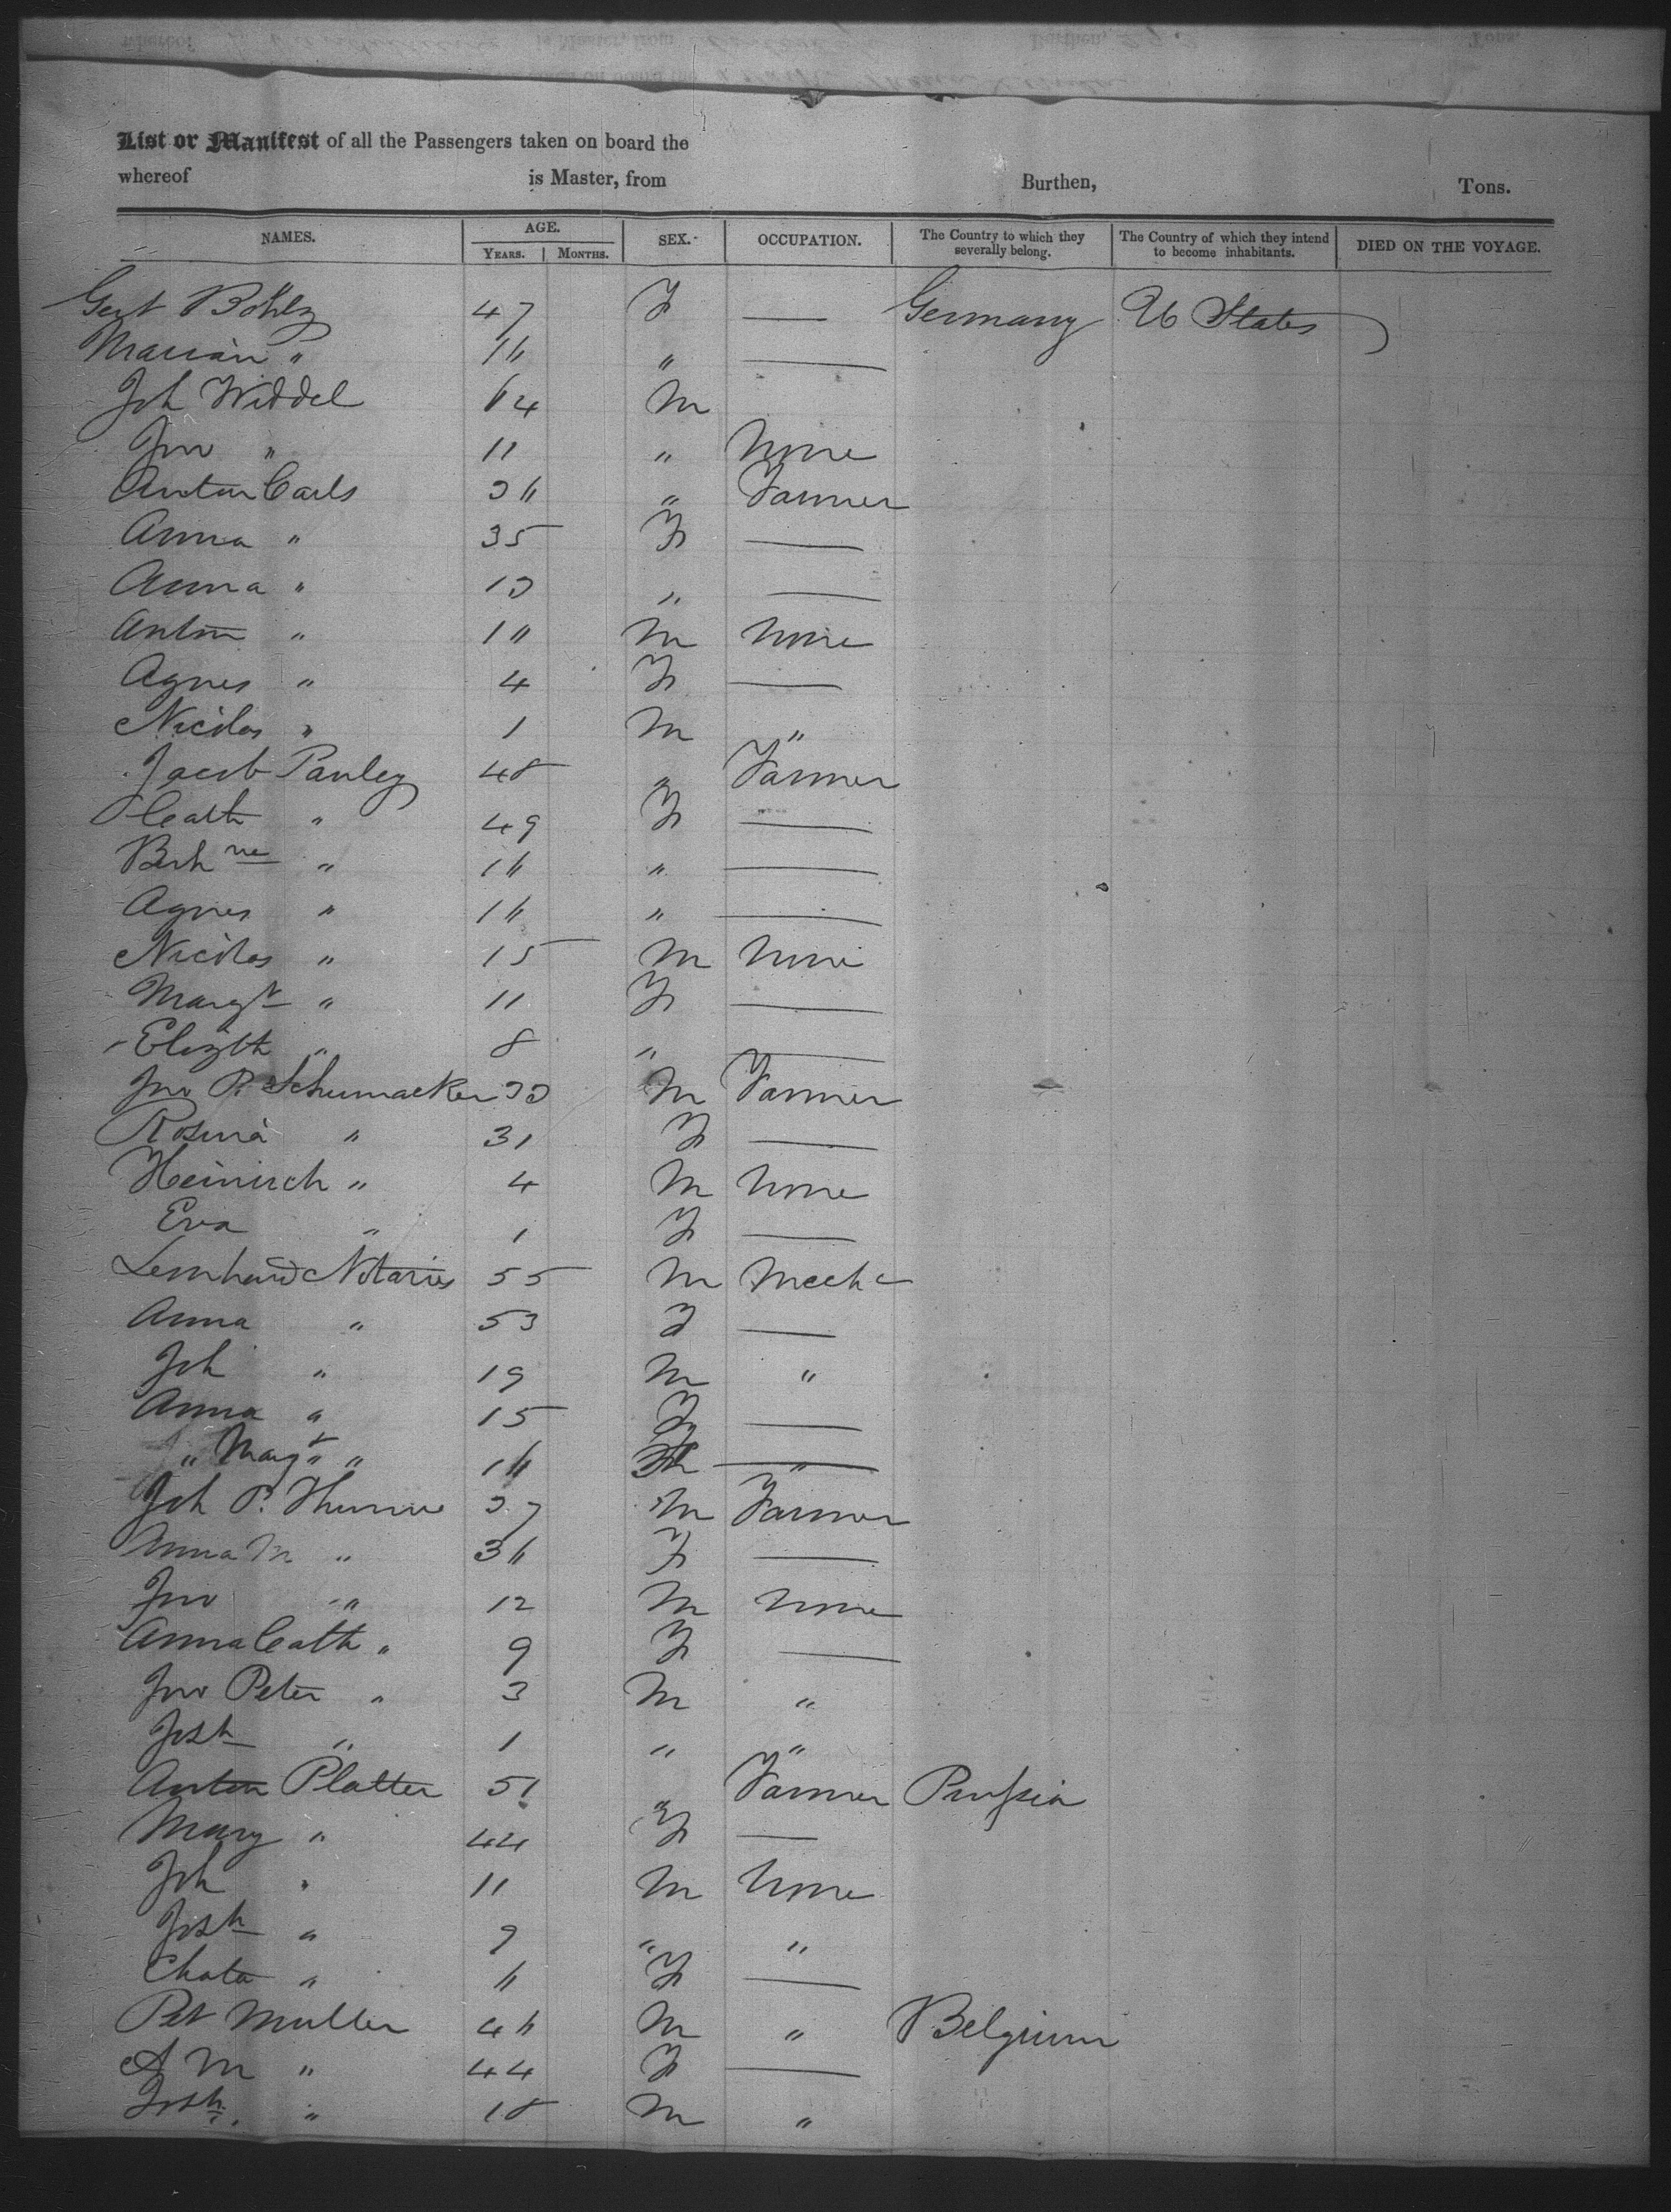 List or Manifest of all the Passengers taken on board the
whereof is Master, from Burthen, Tons.
NAMES. AGE. YEARS. MONTHS. SEX. OCCUPATION. The Country to which they severally belong. The Country of which they intend to become inhabitants. DIED ON THE VOYAGE.
Gert Bohlz 47 F — Germany U States
Marian " 16 " —
Joh Widdel 64 M
Jno " 11 " None
Anton Carls 36 " Farmer
Anna " 35 F —
Anna " 13 " —
Anton " 16 M None
Agnes " 4 F —
Nicolas " 1 M "
Jacob Pauley 48 " Farmer
Cath " 49 F —
Agnes " 16 " —
Nicolas " 15 M None
Margt " 11 F —
Elizth " 8 " —
Jno P. Schumacker 33 M Farmer
Rosina " 31 F —
Heinirch " 4 M None
Eva " 1 F —
Leonhard Notarius 55 M Mechc
Anna " 53 F —
Joh " 19 M "
Anna " 15 F —
" Margt " 16 —
Joh P. 37 M Farmer
Anna M " 36 F —
Jno " 12 M None
Anna Cath " 9 F —
Jno Peter " 3 M "
Josh " 1 " "
Anton Platter 51 " Farmer Prussia
Mary " 44 F —
Joh " 11 M None
Josh " 9 " "
" 6 F —
Pet Muller 46 M " Belgium
A M " 44 F —
Josh " 18 M "